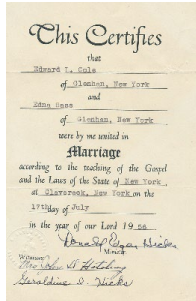 This Certifies
that
Edward L. Cole
of Glenham, New York
and
Edna Rose
of Glenham, New York
were by me united in
Marriage
according to the teaching of the Gospel
and the Laws of the State of New York
at Claverack, New York on the
17th day of July
in the year of our Lord 19 56
Donald Edgar Hicks
Minister
Witness
Mrs John D
Geraldine I. Hicks